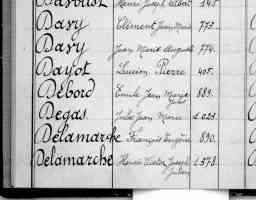 Davoust Henri Joseph Albert 145.
Davy Clément Jean Marie 773.
Davy Jean Marie Auguste 774.
Dayot Lucien Pierre 405.
Debord Emile Jean Marie
Jules 883.
Degas Jules Jean Marie 1.023.
Delamarche François Eugène 890.
Delamarche Henri Victor Joseph
1.378.